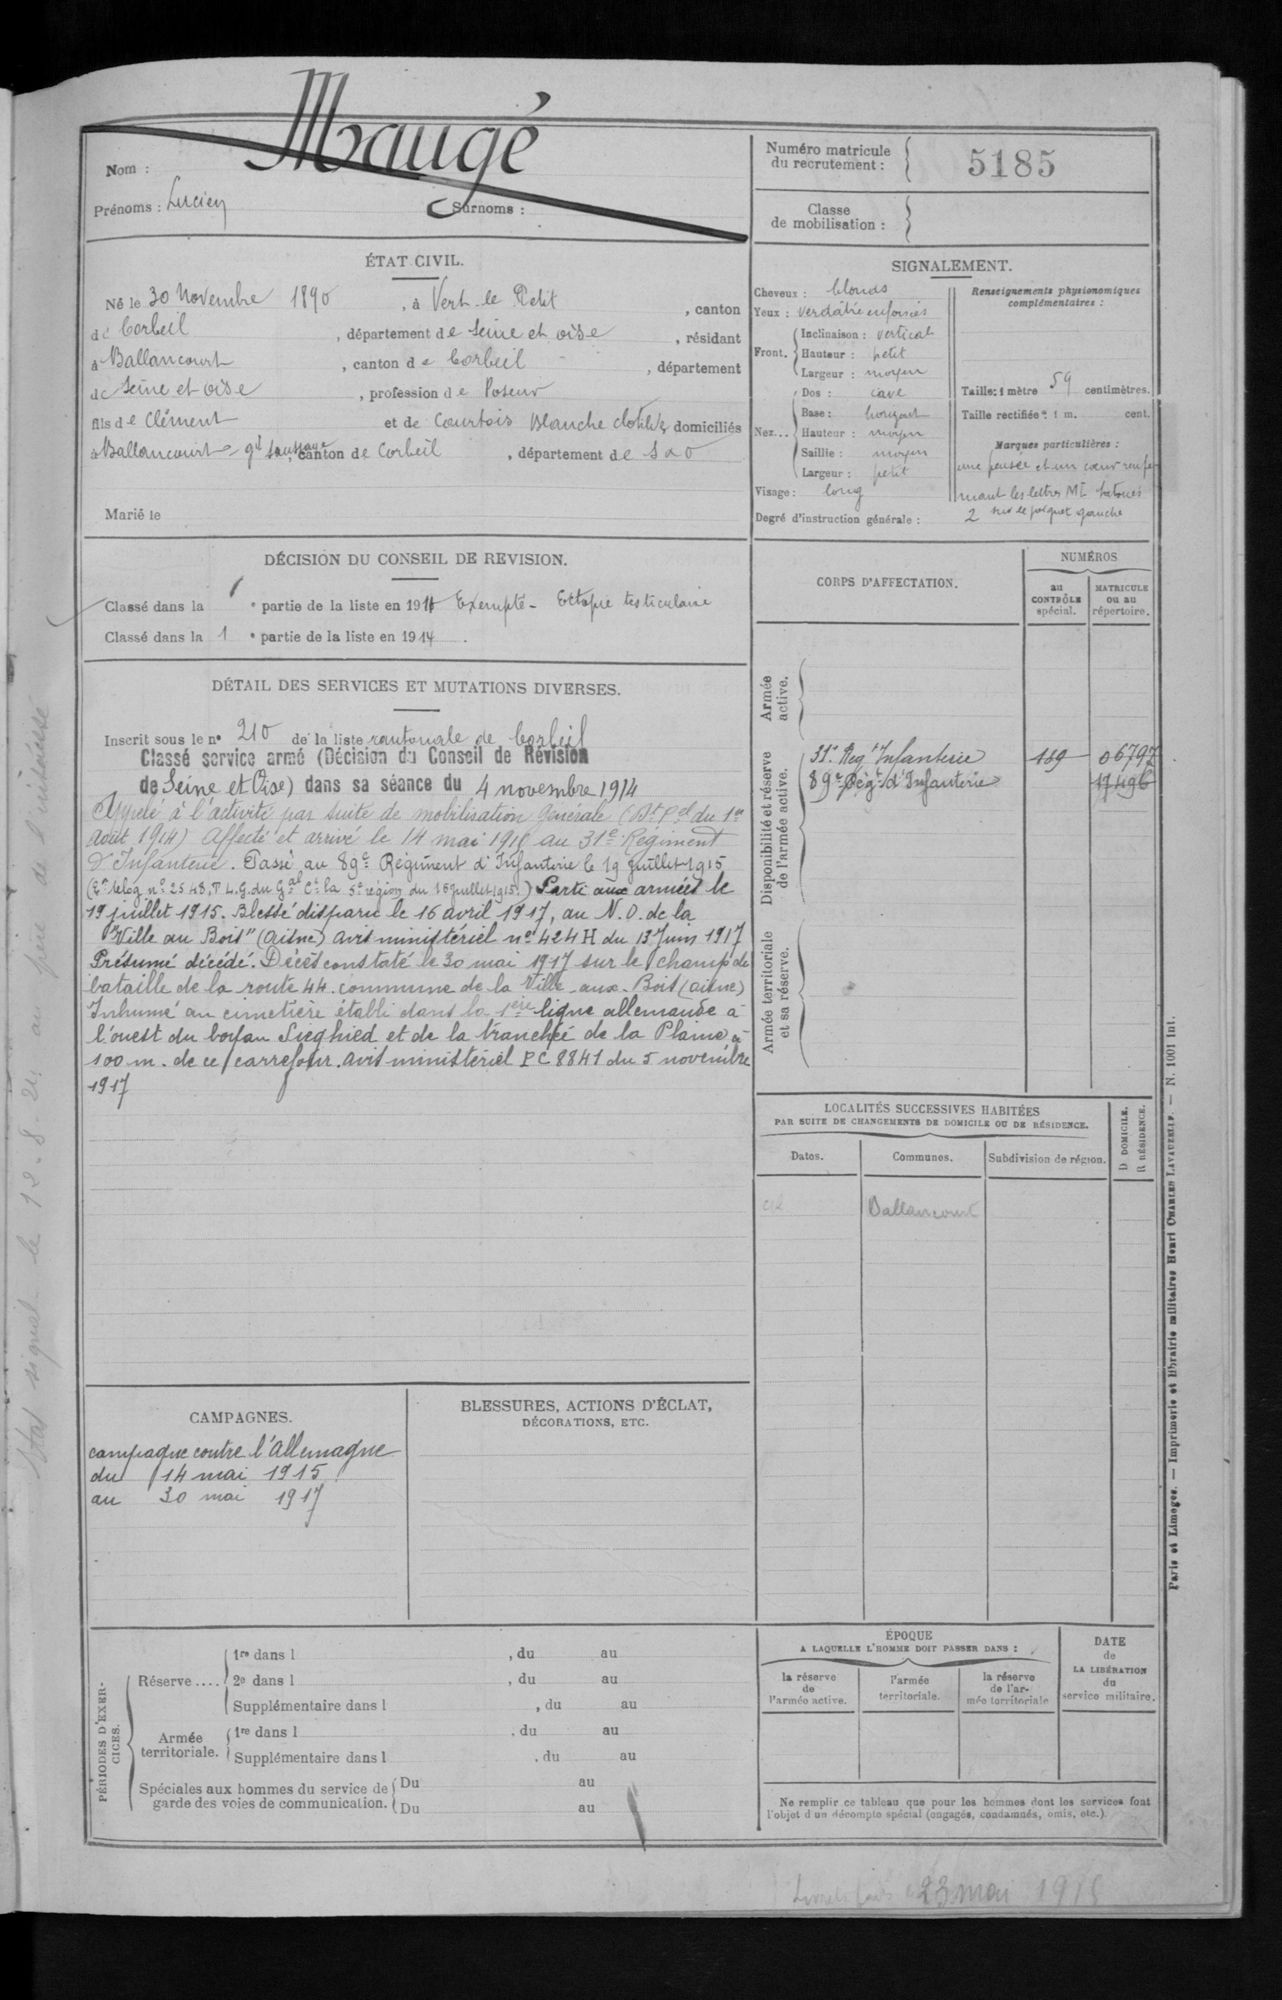 Nom : Maugé
Prénoms : Lucien Surnoms :
Numéro matricule du recrutement : 5185
Classe de mobilisation :
ÉTAT CIVIL.
Né le 30 Novembre 1890, à Vert-le Petit, canton
de Corbeil, département de Seine et Oise, résidant
à Ballancourt, canton de Corbeil, département
de Seine et Oise, profession de Poseur
fils de Clément et de Courtois Blanche Clotilde domiciliés
à Ballancourt gd Saussaye, canton de Corbeil, département de S & O
Marié le
SIGNALEMENT.
Cheveux : blonds
Yeux : verdâtre enfoncés
Front. Inclinaison : vertical
Hauteur : petit
Largeur : moyen
Nez... Dos : cave
Base : horizont
Hauteur : moyen
Saillie : moyen
Largeur : petit
Visage : long
Degré d'instruction générale : 2
Renseignements physionomiques complémentaires :
Taille : 1 mètre 59 centimètres.
Taille rectifiée : 1 m. cent.
Marques particulières :
une pensée et un cœur renfer
mant les lettres ML tatoués
sur le poignet gauche
DÉCISION DU CONSEIL DE REVISION.
Classé dans la e partie de la liste en 191 Exempté - Ectopie testiculaire
Classé dans la 1 e partie de la liste en 1914.
DÉTAIL DES SERVICES ET MUTATIONS DIVERSES.
Inscrit sous le n° 210 de la liste cantonale de Corbeil
Classé service armé (Décision du Conseil de Révision
de Seine et Oise) dans sa séance du 4 novembre 1914
Appelé à l'activité par suite de mobilisation générale (Dt Pel du 1er
Août 1914) Affecté et arrivé le 14 mai 1915 au 31e Régiment
d'Infanterie. Passé au 89e Régiment d'Infanterie le 19 juillet 1915
(Don télég. n° 2548, T.L.G. du Gal Ct la 5e région du 16 juillet 1915.) Parti aux armées le
19 juillet 1915. Blessé disparu le 16 avril 1917, au N.O. de la
"Ville au Bois" (Aisne) avis ministériel n° 424 H du 13 Juin 1917
Présumé décédé. Décès constaté le 30 mai 1917 sur le champ de
bataille de la route 44. commune de la Ville-aux-Bois (Aisne)
Inhumé au cimetière établi dans la 1ère ligne allemande à
l'ouest du boyau Sieghied et de la tranchée de la Plaine à
100 m. de ce carrefour. avis ministériel P C 8841 du 5 novembre
1917
CORPS D'AFFECTATION.
NUMÉROS
au CONTRÔLE spécial.
MATRICULE ou au répertoire.
Armée active.
Disponibilité et réserve de l'armée active.
31e Régt Infanterie 189 06797
89e Régt d'Infanterie 17496
Armée territoriale et sa réserve.
LOCALITÉS SUCCESSIVES HABITÉES
PAR SUITE DE CHANGEMENTS DE DOMICILE OU DE RÉSIDENCE.
Dates. Communes. Subdivision de région. D. DOMICILE. R. RÉSIDENCE.
Ballancourt
CAMPAGNES.
campagne contre l'Allemagne
du 14 mai 1915
au 30 mai 1917
BLESSURES, ACTIONS D'ÉCLAT,
DÉCORATIONS, ETC.
PÉRIODES D'EXERCICES.
Réserve.... 1re dans l , du au
2e dans l , du au
Supplémentaire dans l , du au
Armée territoriale. 1re dans l , du au
Supplémentaire dans l , du au
Spéciales aux hommes du service de garde des voies de communication. Du au
Du au
ÉPOQUE
A LAQUELLE L'HOMME DOIT PASSER DANS :
la réserve de l'armée active.
l'armée territoriale.
la réserve de l'armée territoriale
DATE de LA LIBÉRATION du service militaire.
Ne remplir ce tableau que pour les hommes dont les services font
l'objet d'un décompte spécial (engagés, condamnés, omis, etc.).
23 mai 1915
Paris et Limoges. — Imprimerie et librairie militaires Henri CHARLES LAVAUZELLE. — N. 1001 int.
Etat signal. le 12-8-21, au père de l'intéressé